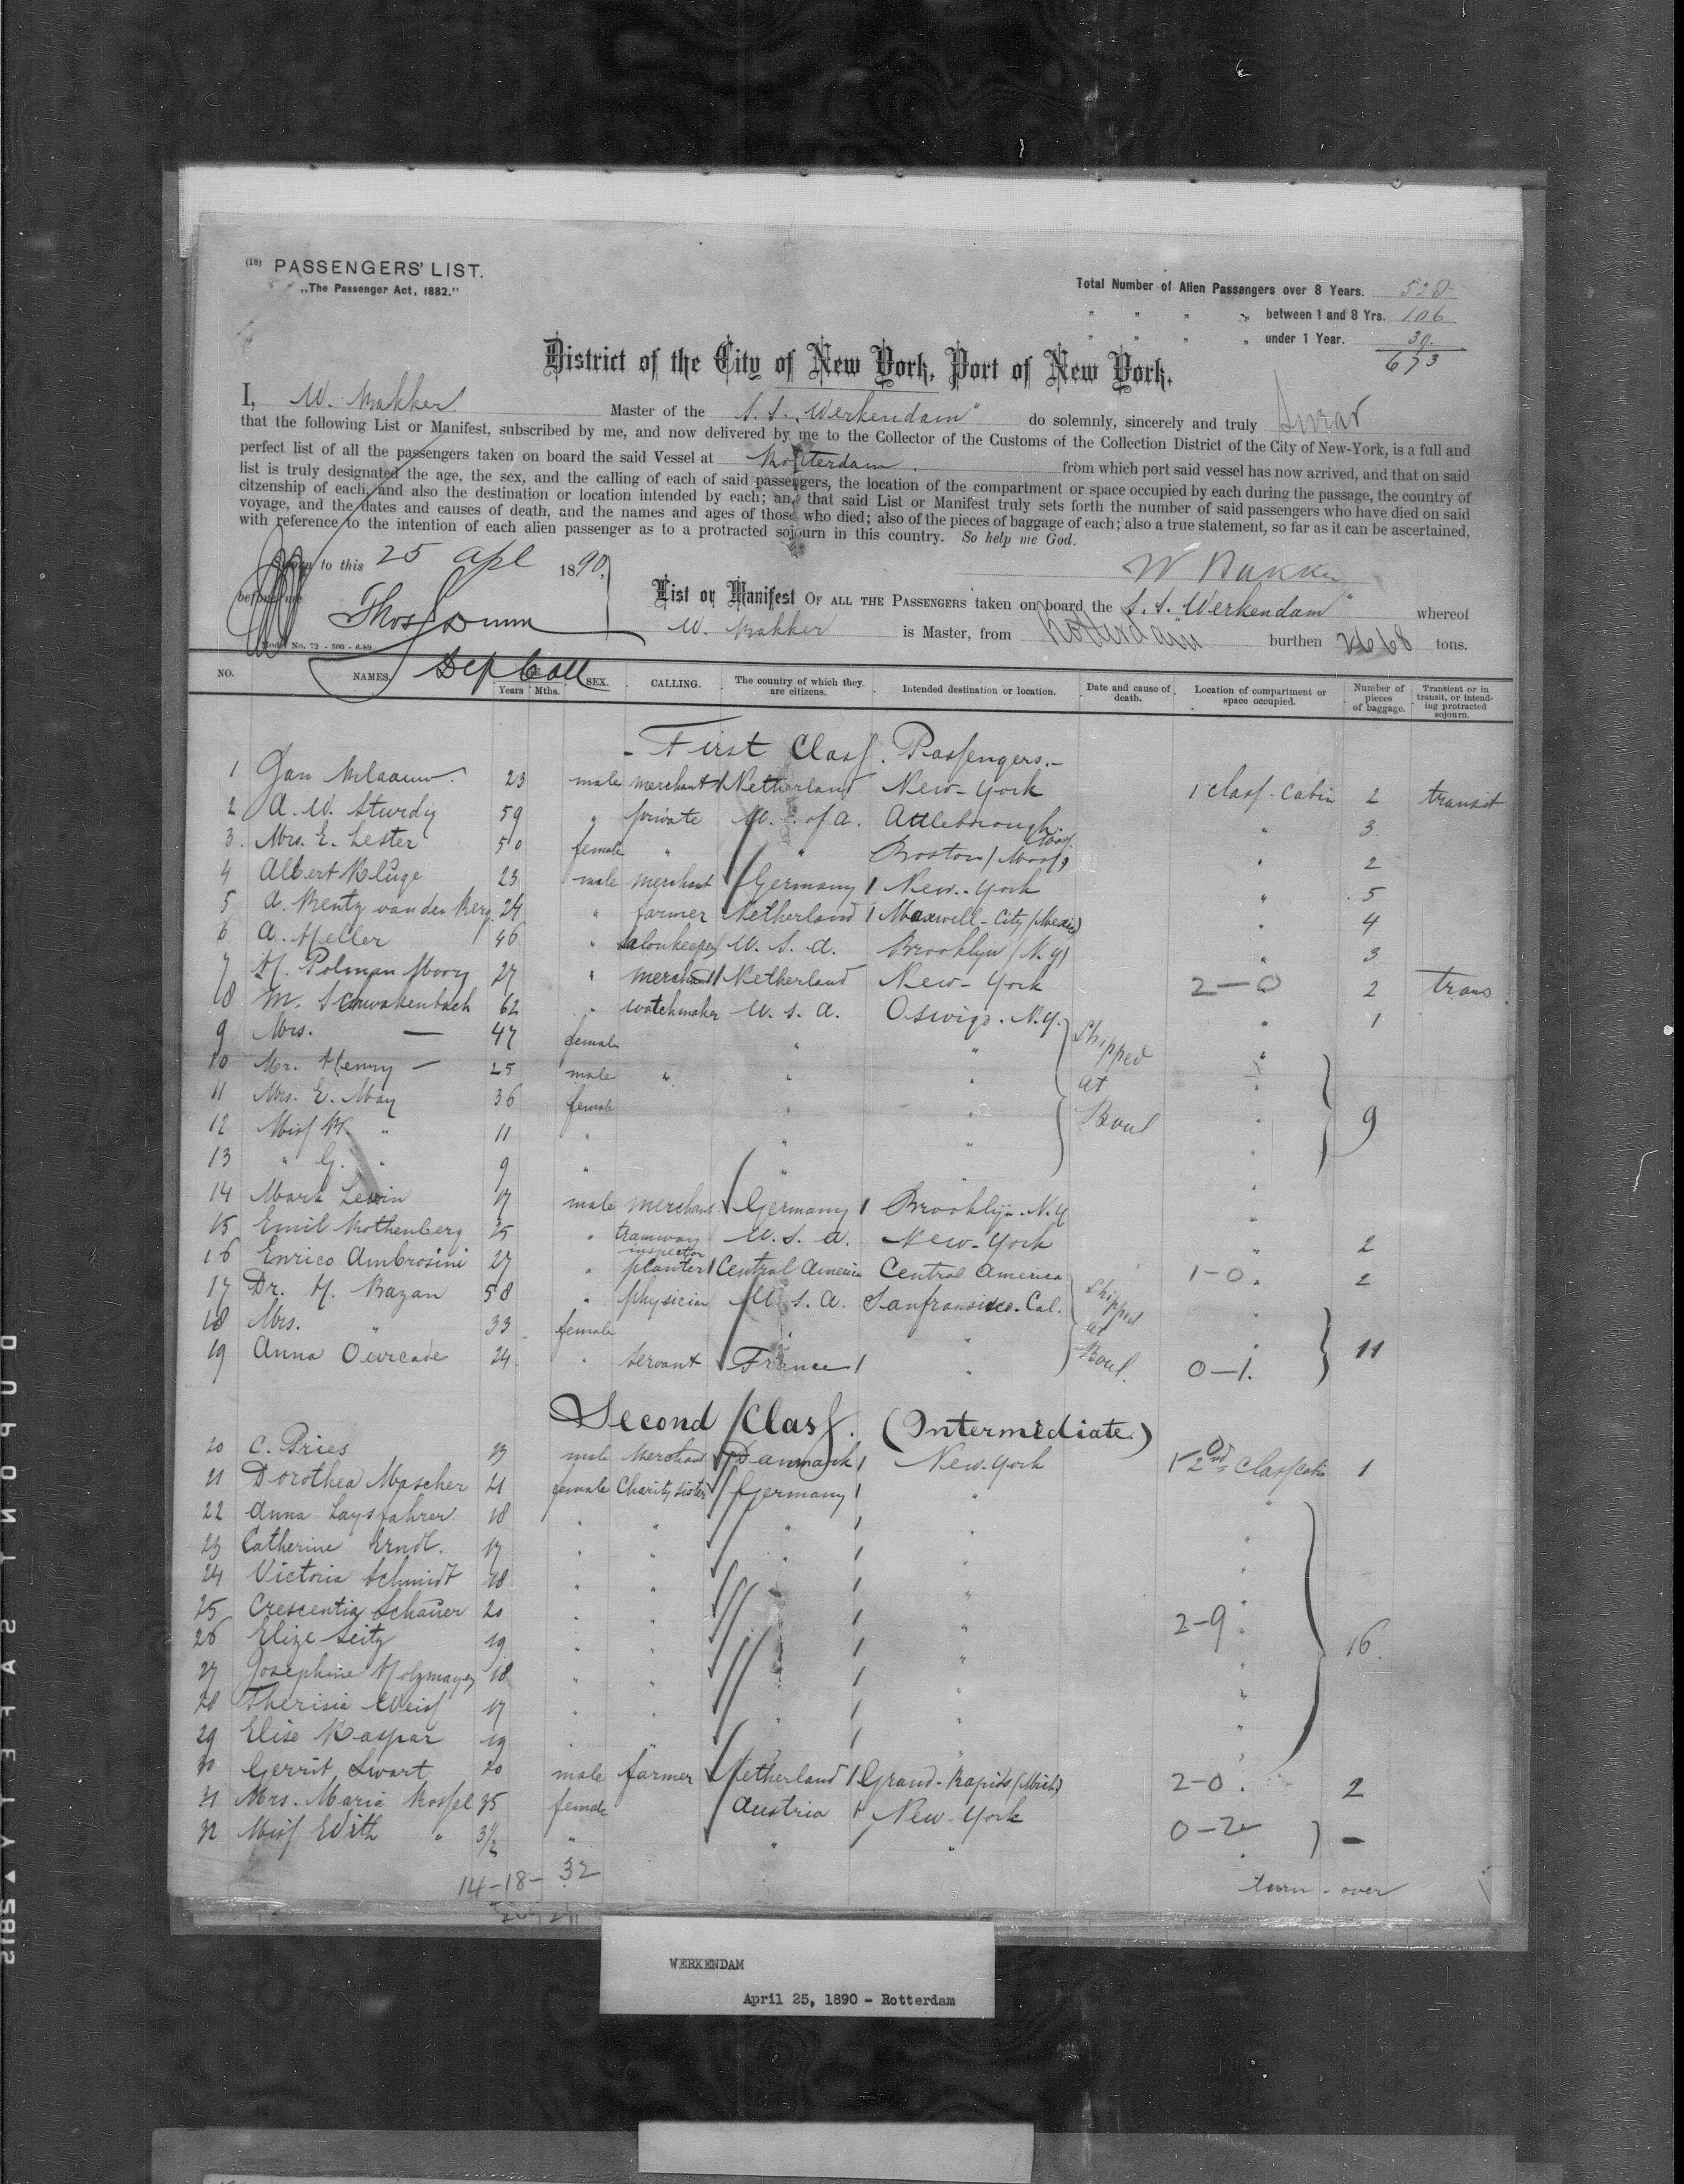 (18) PASSENGERS' LIST.
„The Passenger Act, 1882."
Total Number of Alien Passengers over 8 Years.
" " " " between 1 and 8 Yrs. 106
" " " " under 1 Year. 39.
673
District of the City of New York, Port of New York.
I, W. Bakker Master of the S.S. „Werkendam" do solemnly, sincerely and truly swear
that the following List or Manifest, subscribed by me, and now delivered by me to the Collector of the Customs of the Collection District of the City of New-York, is a full and
perfect list of all the passengers taken on board the said Vessel at Rotterdam. from which port said vessel has now arrived, and that on said
list is truly designated the age, the sex, and the calling of each of said passengers, the location of the compartment or space occupied by each during the passage, the country of
citzenship of each, and also the destination or location intended by each; and that said List or Manifest truly sets forth the number of said passengers who have died on said
voyage, and the dates and causes of death, and the names and ages of those who died; also of the pieces of baggage of each; also a true statement, so far as it can be ascertained,
with reference to the intention of each alien passenger as to a protracted sojourn in this country. So help me God.
Sworn to this 25 Apl 1890
before me
W Bakker
Thos Dunn
Dep Coll
List or Manifest OF ALL THE PASSENGERS taken on board the S.S. Werkendam" whereof
W. Bakker is Master, from Rotterdam burthen 2668 tons.
Model No. 72 - 500 - 6-89
NO. NAMES. Years Mths. SEX. CALLING. The country of which they are citizens. Intended destination or location. Date and cause of death. Location of compartment or space occupied. Number of pieces of baggage. Transient or in transit, or intending protracted sojourn.
- First Class. Passengers. -
1 Jan Blaauw. 23 male merchant Netherland New-York 1 class. Cabin 2 transit
2 A. W. Sturdy 59 " private U. S. of A. Attleborough. Mass. " 3.
3. Mrs. E. Lester 50 female " " Boston (Mass) " 2
4 Albert Kluge 23 male merchant Germany New-York " 5
5 A. Bentz van den Berg. 24 " farmer Netherland Maxwell-City (Mexico) " 4
6 A. Heller 46 " Saloonkeeper U. S. A. Brooklyn (N.Y) " 3
7 H. Polman Mooy 27 " merchant Netherland New-York 2-0 2 trans
8 M. Schwakenbach 62 " watchmaker U. S. A. Oswigo. N.Y. Shipped at Boul " 1
9 Mrs. — 47 female " " "
10 Mr. Henry — 25 male " " " "
11 Mrs. E. May 36 female " " " 9
12 Miss B. " 11 " " " "
13 " G. " 9 " " "
14 Mark Lewin 17 male merchant Germany Brooklyn. N.Y "
15 Emil Rothenberg 25 " tramway inspector U. S. A. New-York " 2
16 Enrico Ambrosini 27 " planter Central America Central America 1-0. 2
17 Dr. H. Bazan 58 " physician U. S. A. Sanfransisco. Cal. Shipped at Boul. "
18 Mrs. " 33 female " " " 11
19 Anna Ourcade 24 " servant France " 0-1.
Second Class. (Intermediate.)
20 C. Pries 23 male Merchant Danmark New-York 2nd Class Cabin 1
21 Dorothea Mascher 21 female Charity sister Germany " "
22 Anna Laysfahrer 18 " " " " "
23 Catherine Erndt. 17 " " " " "
24 Victoria Schmidt 18 " " " " "
25 Crescentia Schauer 20 " " " " "
26 Elize Seitz 19 " " " " 2-9 " 16.
27 Josephine Holzmayer 18 " " " " "
28 Therisia Weiss 17 " " " " "
29 Elise Kaspar 19 " " " " "
30 Gerrit Swart 20 male farmer Netherland Grand-Rapids (Mich) 2-0. 2
31 Mrs. Maria Kossel 35 female Austria New-York 0-2
32 Miss Edith " 3½ " " " " -
14-18- 32
turn-over
WERKENDAM
April 25, 1890 - Rotterdam
DUPONT SAFETY